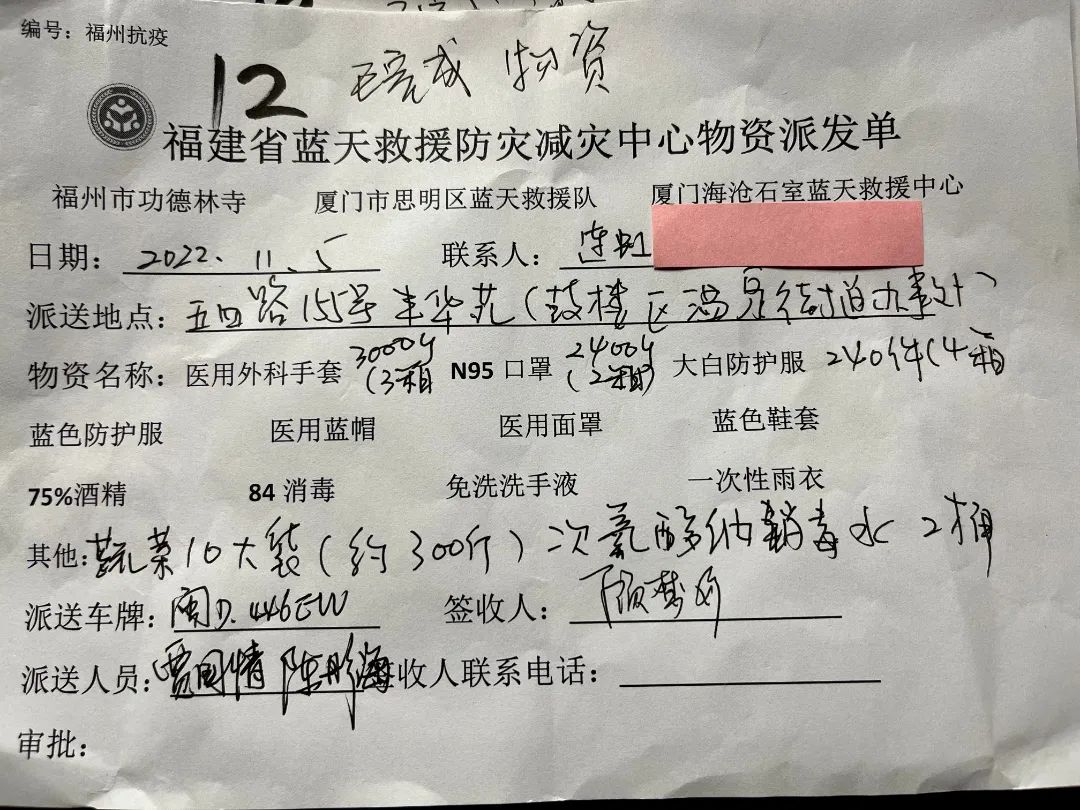 编号：福州抗疫
12 物资
福建省蓝天救援防灾减灾中心物资派发单
福州市功德林寺 厦门市思明区蓝天救援队 厦门海沧石室蓝天救援中心
日期：2022、11、5 联系人：连虹
派送地点：五四路155号丰华苑（鼓楼区温泉街道办事处）
物资名称：医用外科手套 3000个（3箱 N95 口罩 2400个（2箱） 大白防护服 240件（4箱
蓝色防护服 医用蓝帽 医用面罩 蓝色鞋套
75%酒精 84 消毒 免洗洗手液 一次性雨衣
其他：蔬菜10大袋（约300斤）次氯酸钠消毒水2桶
派送车牌：闽D.446EW 签收人：
派送人员：贾国情 陈彤海 收人联系电话：
审批：